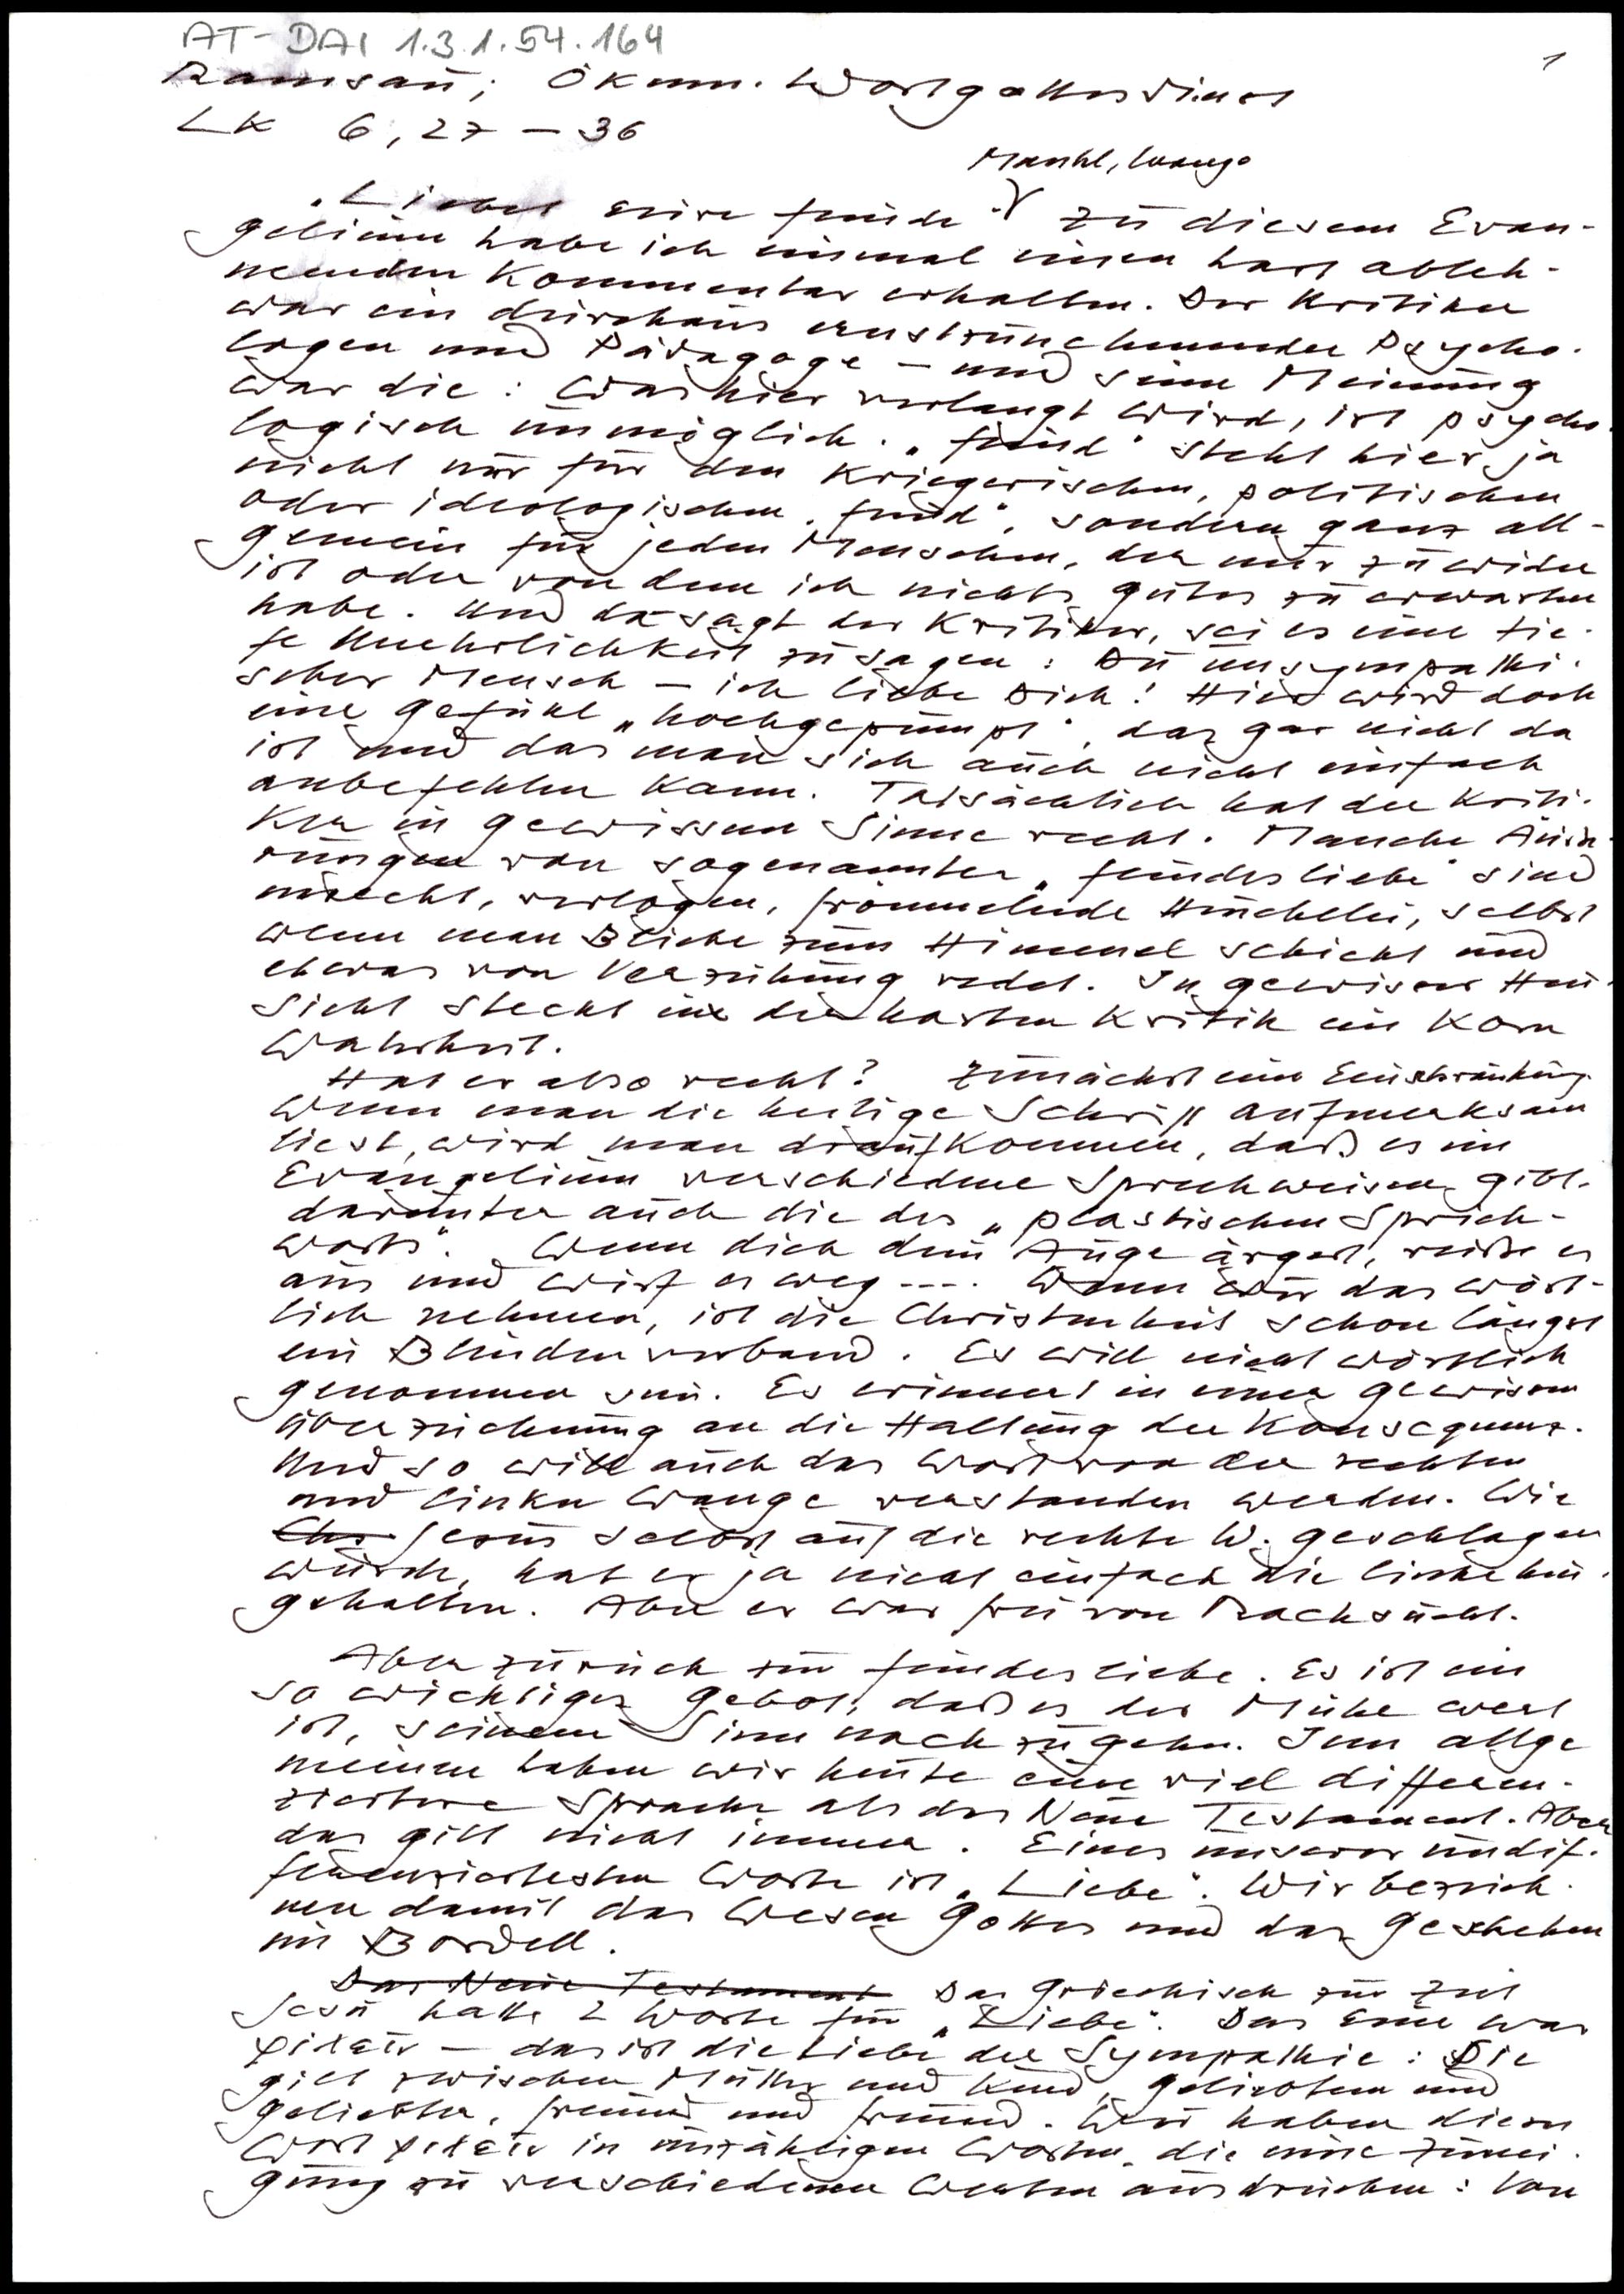 AT-DAI 1.3.1.54.164
1
Ramsau, Ökum. Wortgottesdienst
LK 6,27-36
Mantel, Wange
"Liebet eure Feinde". Zu diesem Evan-
gelium habe ich einmal einen hart ableh-
nenden Kommentar erhalten. Der Kritiker
war ein durchaus ernstzunehmender Psycho-
logen und Pädagoge - und seine Meinung
war die: Was hier verlangt wird, ist psycho-
logisch unmöglich. "Feind" steht hier ja
nicht nur für den kriegerischen, politischen
oder ideologischen "Feind", sondern ganz all-
gemein für jeden Menschen, der mir zuwider
ist oder von dem ich nichts gutes zu erwarten
habe. Und da sagt der Kritiker, sei es eine tie-
fe Unehrlichkeit zu sagen: Du unsympathi-
scher Mensch - ich liebe Dich! Hier wird doch
eine Gefühl "hochgepumpt", das gar nicht da
ist und das man sich auch nicht einfach
anbefehlen kann. Tatsächlich hat der Kriti-
ker in gewissem Sinne recht. Manche Äusse-
rungen von sogenannter "Feindesliebe" sind
unecht, verlogen, frömmelnde Heuchelei, selbst
wenn man Blicke zum Himmel schickt und
etwas von Verzeihung redet. In gewisser Hin-
sicht steckt in der harten Kritik ein Korn
Wahrheit.
Hat er also recht? Zunächst eine Einschränkung.
Wenn man die heilige Schrift aufmerksam
liest, wird man draufkommen, daß es im
Evangelium verschiedene Sprechweisen gibt.
darunter auch die des "plastischen Sprich-
worts". Wenn dich dein Auge ärgert, reiße es
aus und wirf es weg .... Wenn wir das wört-
lich nehmen, ist die Christenheit schon längst
ein Blindenverband. Es will nicht wörtlich
genommen sein. Es erinnert in einer gewissen
Überzeichnung an die Haltung der Konsequenz.
Und so will auch das Wort von der rechten
und linken Wange verstanden werden. Wie
Chr Jesus selbst auf die rechte W. geschlagen
wurde, hat er ja nicht einfach die linke hin-
gehalten. Aber er war frei von Rachsucht.
Aber zurück zur Feindesliebe. Es ist ein
so wichtiges Gebot, daß es der Mühe wert
ist, seinem Sinn nachzugehn. Im allge
meinen haben wir heute eine viel differen-
ziertere Sprache als das Neue Testament. Aber
das gilt nicht immer. Eines unserer undif-
ferenziertesten Worte ist "Liebe". Wir bezeich-
nen damit das Wesen Gottes und das Geschehen
im Bordell.
Das Neue Testament Das Griechisch zur Zeit
Jesu hatte 2 Worte für "Liebe". Das Eine war
φιλεῖν - das ist die Liebe der Sympathie: Die
gilt zwischen Mutter und Kind, Geliebtem und
Geliebter, Freund und Freund. Wir haben dieses
Wort φιλεῖν in unzähligen Worten, die eine Zunei-
gung zu verschiedenen Werten ausdrücken: Von